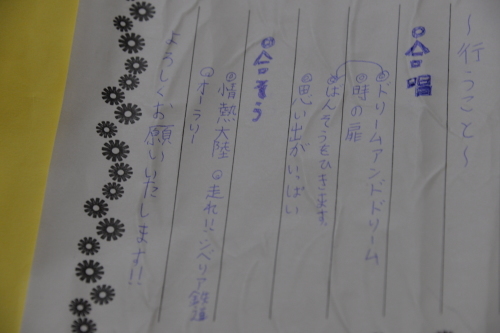 ～行うこと～
合唱
◎ドリームアンドドリーム
◎時の扉
◎ばんそうをひきます。
◎思い出がいっぱい
合そう
◎情熱大陸 ◎走れ!シベリア鉄道
◎オーラリー
よろしくお願いいたします!!